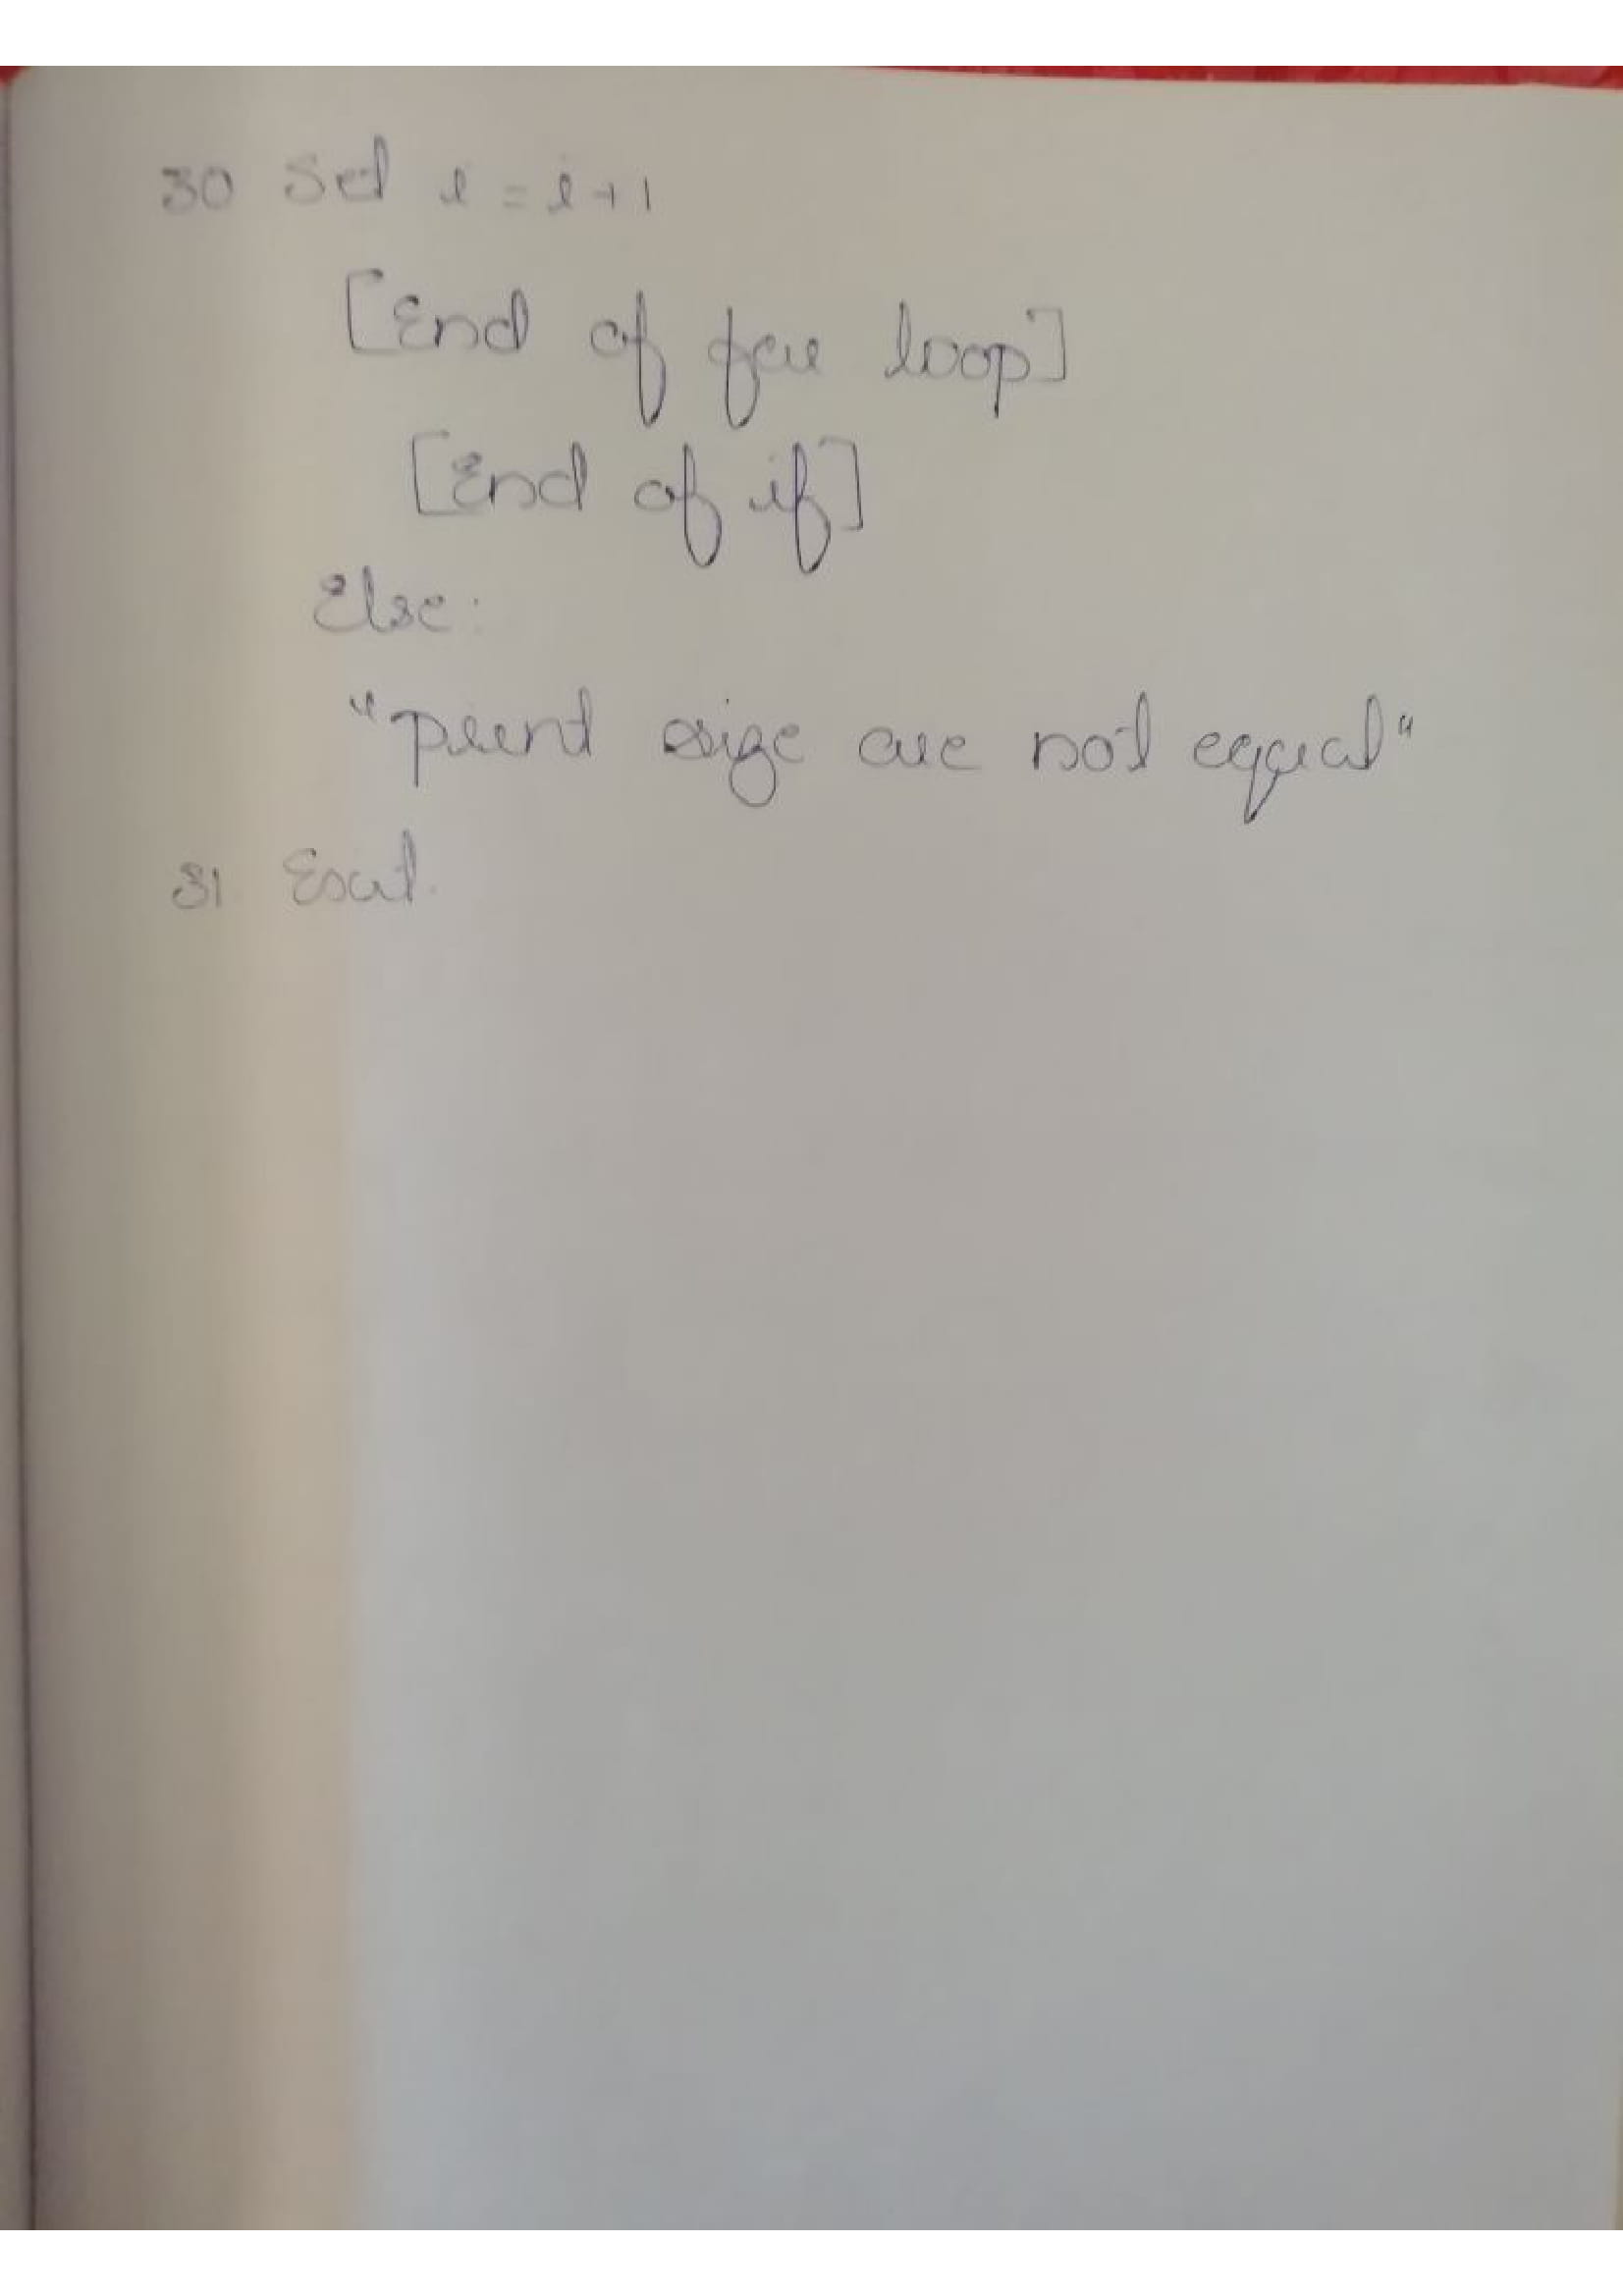 30 Set i = i + 1
[End of for loop]
[End of if]
Else:
"print size are not equal"
31. Exit.